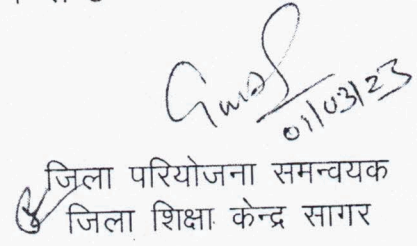 01/03/23
जिला परियोजना समन्वयक
जिला शिक्षा केन्द्र सागर